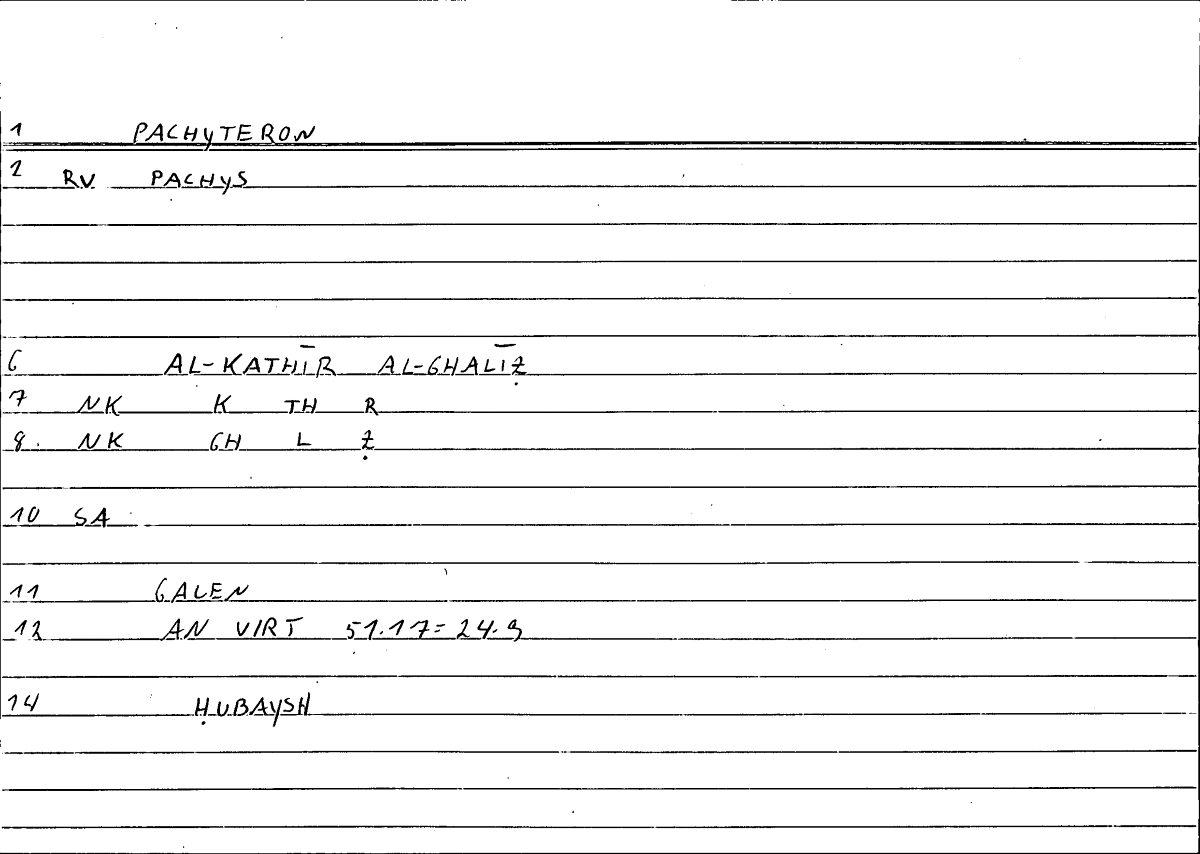 1 PACHYTERON
2 RV PACHYS
6 AL-KATHĪR AL-GHALĪẒ
7 NK K TH R
8. NK GH L Ẓ
10 SA
11 GALEN
12 AN VIRT 51.17=24.9
14 ḤUBAYSH